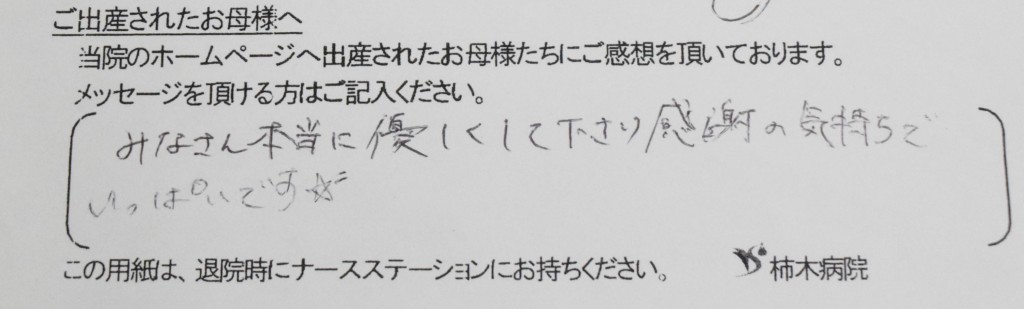 ご出産されたお母様へ
当院のホームページへ出産されたお母様たちにご感想を頂いております。
メッセージを頂ける方はご記入ください。
みなさん本当に優しくして下さり感謝の気持ちで
いっぱいです☆
この用紙は、退院時にナースステーションにお持ちください。 柿木病院